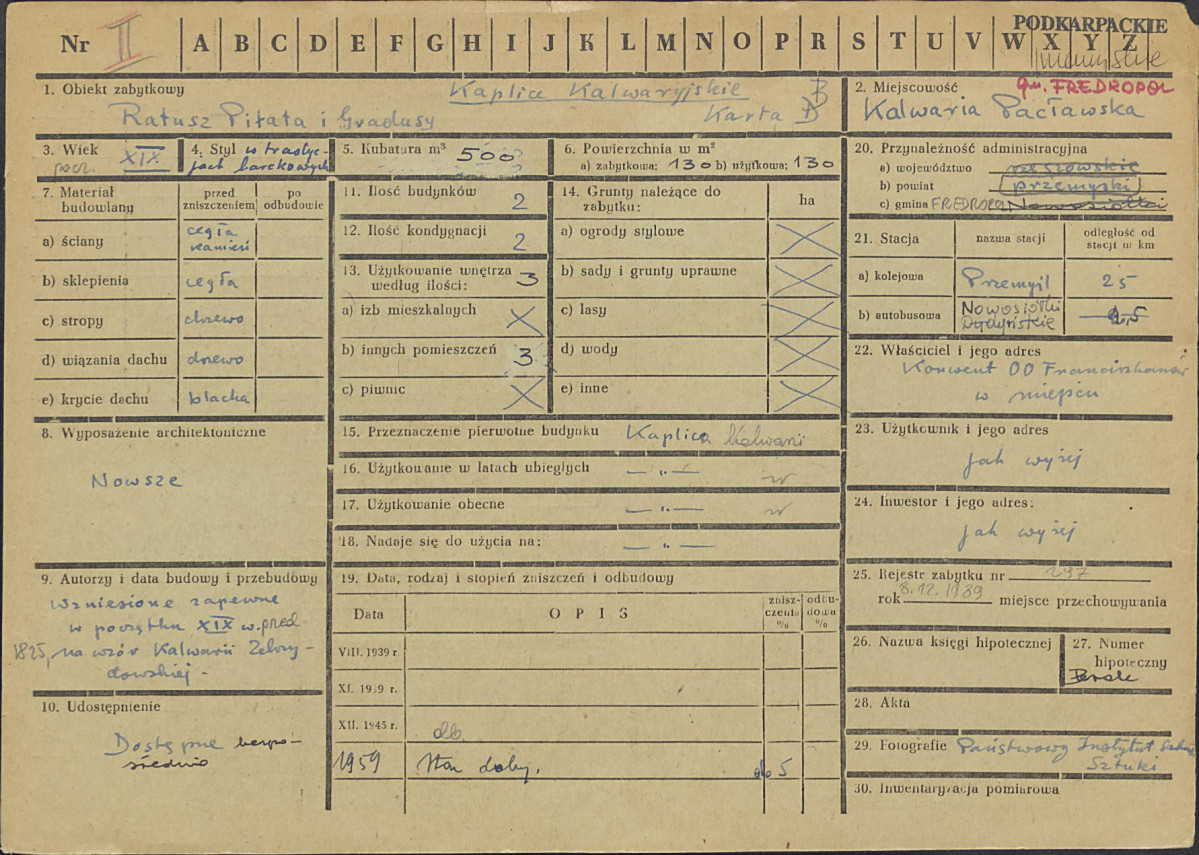 Nr II A B C D E F G H I J K L M N O P R S T U V W X Y Z
PODKARPACKIE
1. Obiekt zabytkowy Kaplice Kalwaryjskie B
Ratusz Piłata i Gradusy Karta B
2. Miejscowość gm. FREDROPOL
Kalwaria Pacławska
3. Wiek
pocz. XIX
4. Styl w tradyc-
jach barokowych
5. Kubatura m³ 500
6. Powierzchnia w m²
a) zabytkowa: 130 b) użytkowa: 130
7. Materiał budowlany
przed zniszczeniem
po odbudowie
a) ściany cegła kamień
b) sklepienia cegła
c) stropy drzewo
d) wiązania dachu drzewo
e) krycie dachu blacha
8. Wyposażenie architektoniczne
Nowsze
9. Autorzy i data budowy i przebudowy
Wzniesione zapewne
w początku XIX w. przed
1825, na wzór Kalwarii Zebrzy-
dowskiej -
10. Udostępnienie
Dostępne bezpo-
średnio
11. Ilość budynków 2
12. Ilość kondygnacji 2
13. Użytkowanie wnętrza według ilości: 3
a) izb mieszkalnych
b) innych pomieszczeń 3
c) piwnic
14. Grunty należące do zabytku:
ha
a) ogrody stylowe
b) sady i grunty uprawne
c) lasy
d) wody
e) inne
15. Przeznaczenie pierwotne budynku Kaplica Kalwarii
16. Użytkowanie w latach ubiegłych — „ —
17. Użytkowanie obecne — „ —
18. Nadaje się do użycia na: — „ —
19. Data, rodzaj i stopień zniszczeń i odbudowy
Data OPIS zniszczenie % odbudowa %
VIII. 1939 r.
XI. 1939 r.
XII. 1945 r. db.
1959 Stan dobry. do 5
20. Przynależność administracyjna
a) województwo rzeszowskie
b) powiat (przemyski)
c) gmina FREDROPOL Nowosiółki
21. Stacja
nazwa stacji
odległość od stacji w km
a) kolejowa Przemyśl 25
b) autobusowa Nowosiółki Dydyńskie
22. Właściciel i jego adres
Konwent OO Franciszkanów
w miejscu
23. Użytkownik i jego adres
jak wyżej
24. Inwestor i jego adres:
jak wyżej
25. Rejestr zabytku nr 297
rok 8.12.1989 miejsce przechowywania
26. Nazwa księgi hipotecznej
27. Numer hipoteczny
28. Akta
29. Fotografie Państwowy Instytut Sztuki
30. Inwentaryzacja pomiarowa